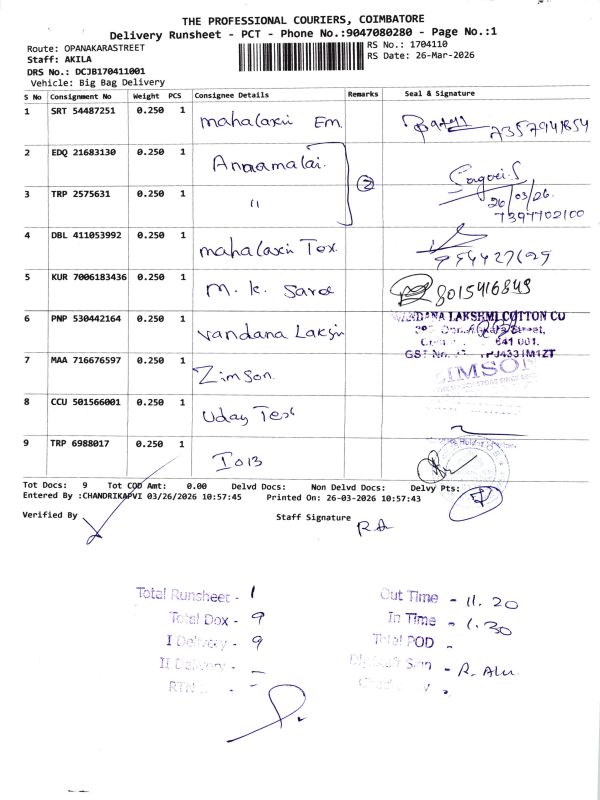 THE PROFESSIONAL COURIERS, COIMBATORE
Delivery Runsheet - PCT - Phone No.:9047080280 - Page No.:1
Route: OPANAKARASTREET
RS No.: 1704110
Staff: AKILA
RS Date: 26-Mar-2026
DRS No.: DCJB170411001
Vehicle: Big Bag Delivery
S No Consignment No Weight PCS Consignee Details Remarks Seal & Signature
1 SRT 54487251 0.250 1 mahalaxmi Em
2 EDQ 21683130 0.250 1 Annamalai.
3 TRP 2575631 0.250 1 "
2
26/03/26
7397702100
4 DBL 411053992 0.250 1 mahalaxmi Tex
5 KUR 7006183436 0.250 1 M. K. Saree 8015416849
6 PNP 530442164 0.250 1 Vandana Laksmi
VANDANA LAKSHMI COTTON CO
Street,
641 001.
GST No.
7 MAA 716676597 0.250 1 Zimson.
ZIMSON
8 CCU 501566001 0.250 1 Uday Tex
9 TRP 6988017 0.250 1 IOB
Tot Docs: 9 Tot COD Amt: 0.00 Delvd Docs: Non Delvd Docs: Delvy Pts:
Entered By :CHANDRIKAPVI 03/26/2026 10:57:45 Printed On: 26-03-2026 10:57:43
Verified By
Staff Signature
Total Runsheet - 1
Total Dox - 9
I Delivery - 9
II Delivery - -
RTN
Out Time - 11.20
In Time - 1.30
Total POD -